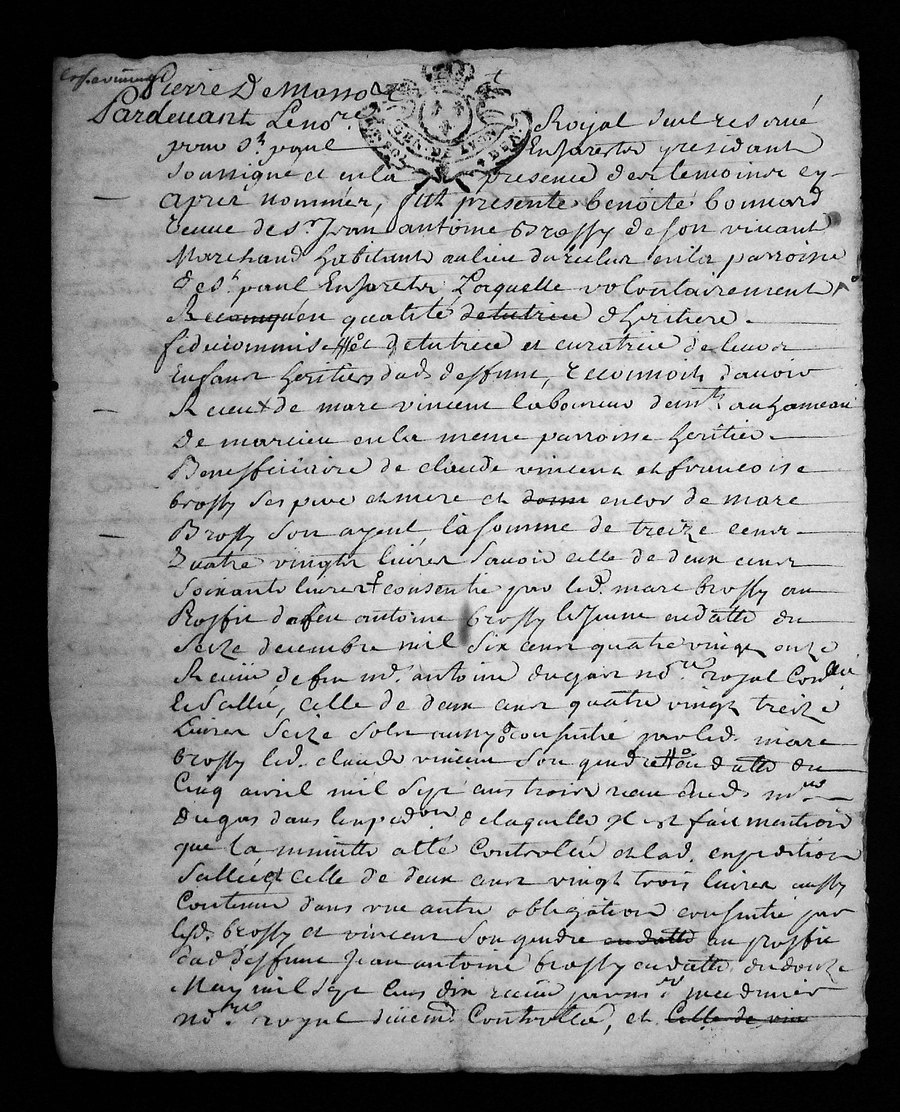 Pierre De Monso
Pardeuant Le no.re Royal seul reserué
GEN. DE LYON
pour S.t paul En Jarestz residant
Soussigne et en la presence des temoins cy
apres nommés, fut presente benoite bonnard
veuve de s.r Jean antoine Brossy de son viuant
Marchand habitant au lieu du reclus en la parroisse
de s.t paul En Jarestz Laquelle volontairement
en qualité de tutrice d'heritiere
fideicommise et de tutrice et curatrice de leurs
Enfans heritiers dud. deffunt, reconnoit d'auoir
Receu de marc vincent laboureur dem.t au hameau
De marcieu en la meme parroisse heritier
Benefficiaire de claude vincent et francoise
brossy ses pere et mere et encor de marc
Brossy son ayeul la somme de treize cens
Quatre vingts liures sauoir celle de deux cens
Soixante liures consentie par led. marc brossy au
Proffit de feu antoine brossy le jeune en datte du
Seize decembre mil six cens quatre vingt onze
Receüe de feu m.e antoine dugas no.re royal
et sallée, celle de deux cens quatre vingt treize
Liures seize sols aussy consentie par led. marc
brossy led. claude vincent son gendre en datte du
Cinq auril mil sept cens trois receu dud. m.e
dugas dans l'expedon de laquelle il est fait mention
que la minutte a été controllée et lad. expedition
Sallée et celle de deux cens vingt trois liures aussy
Contenue dans vne autre obligation consentie par
lesd. brossy et vincent son gendre en datte au proffit
dud. deffunt Jean antoine brossy en datte du douze
May mil sept cens dix receüe par m.e
no.re royal controllée, et Celle de vin